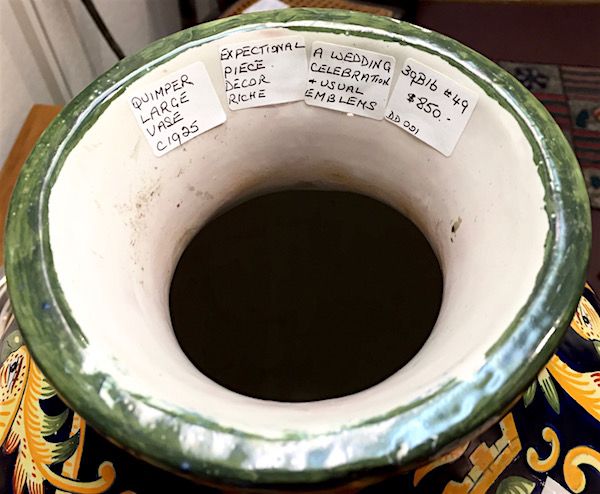 QUIMPER
LARGE
VASE
C1925
EXPECTIONAL
PIECE
DECOR
RICHE
A WEDDING
CELEBRATION
+ USUAL
EMBLEMS
39B16 #49
$850.-
DD001